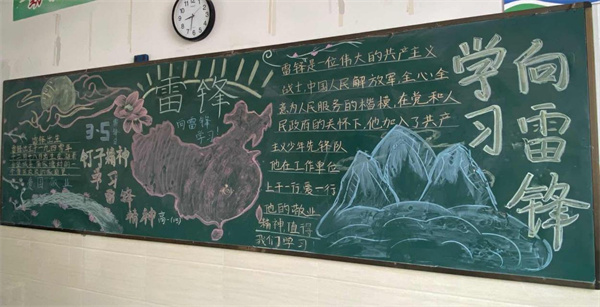 雷锋
向雷锋
学习
3·5
钉子精神
学习
雷锋
精神
高一(四)
雷锋是一位伟大的共产主义
战士,中国人民解放军,全心全
意为人民服务的楷模,在党和人
民政府的关怀下,他加入了共产
主义少年先锋队
他在工作单位
上干一行爱一行
他的敬业
精神值得
我们学习
向雷锋
学习